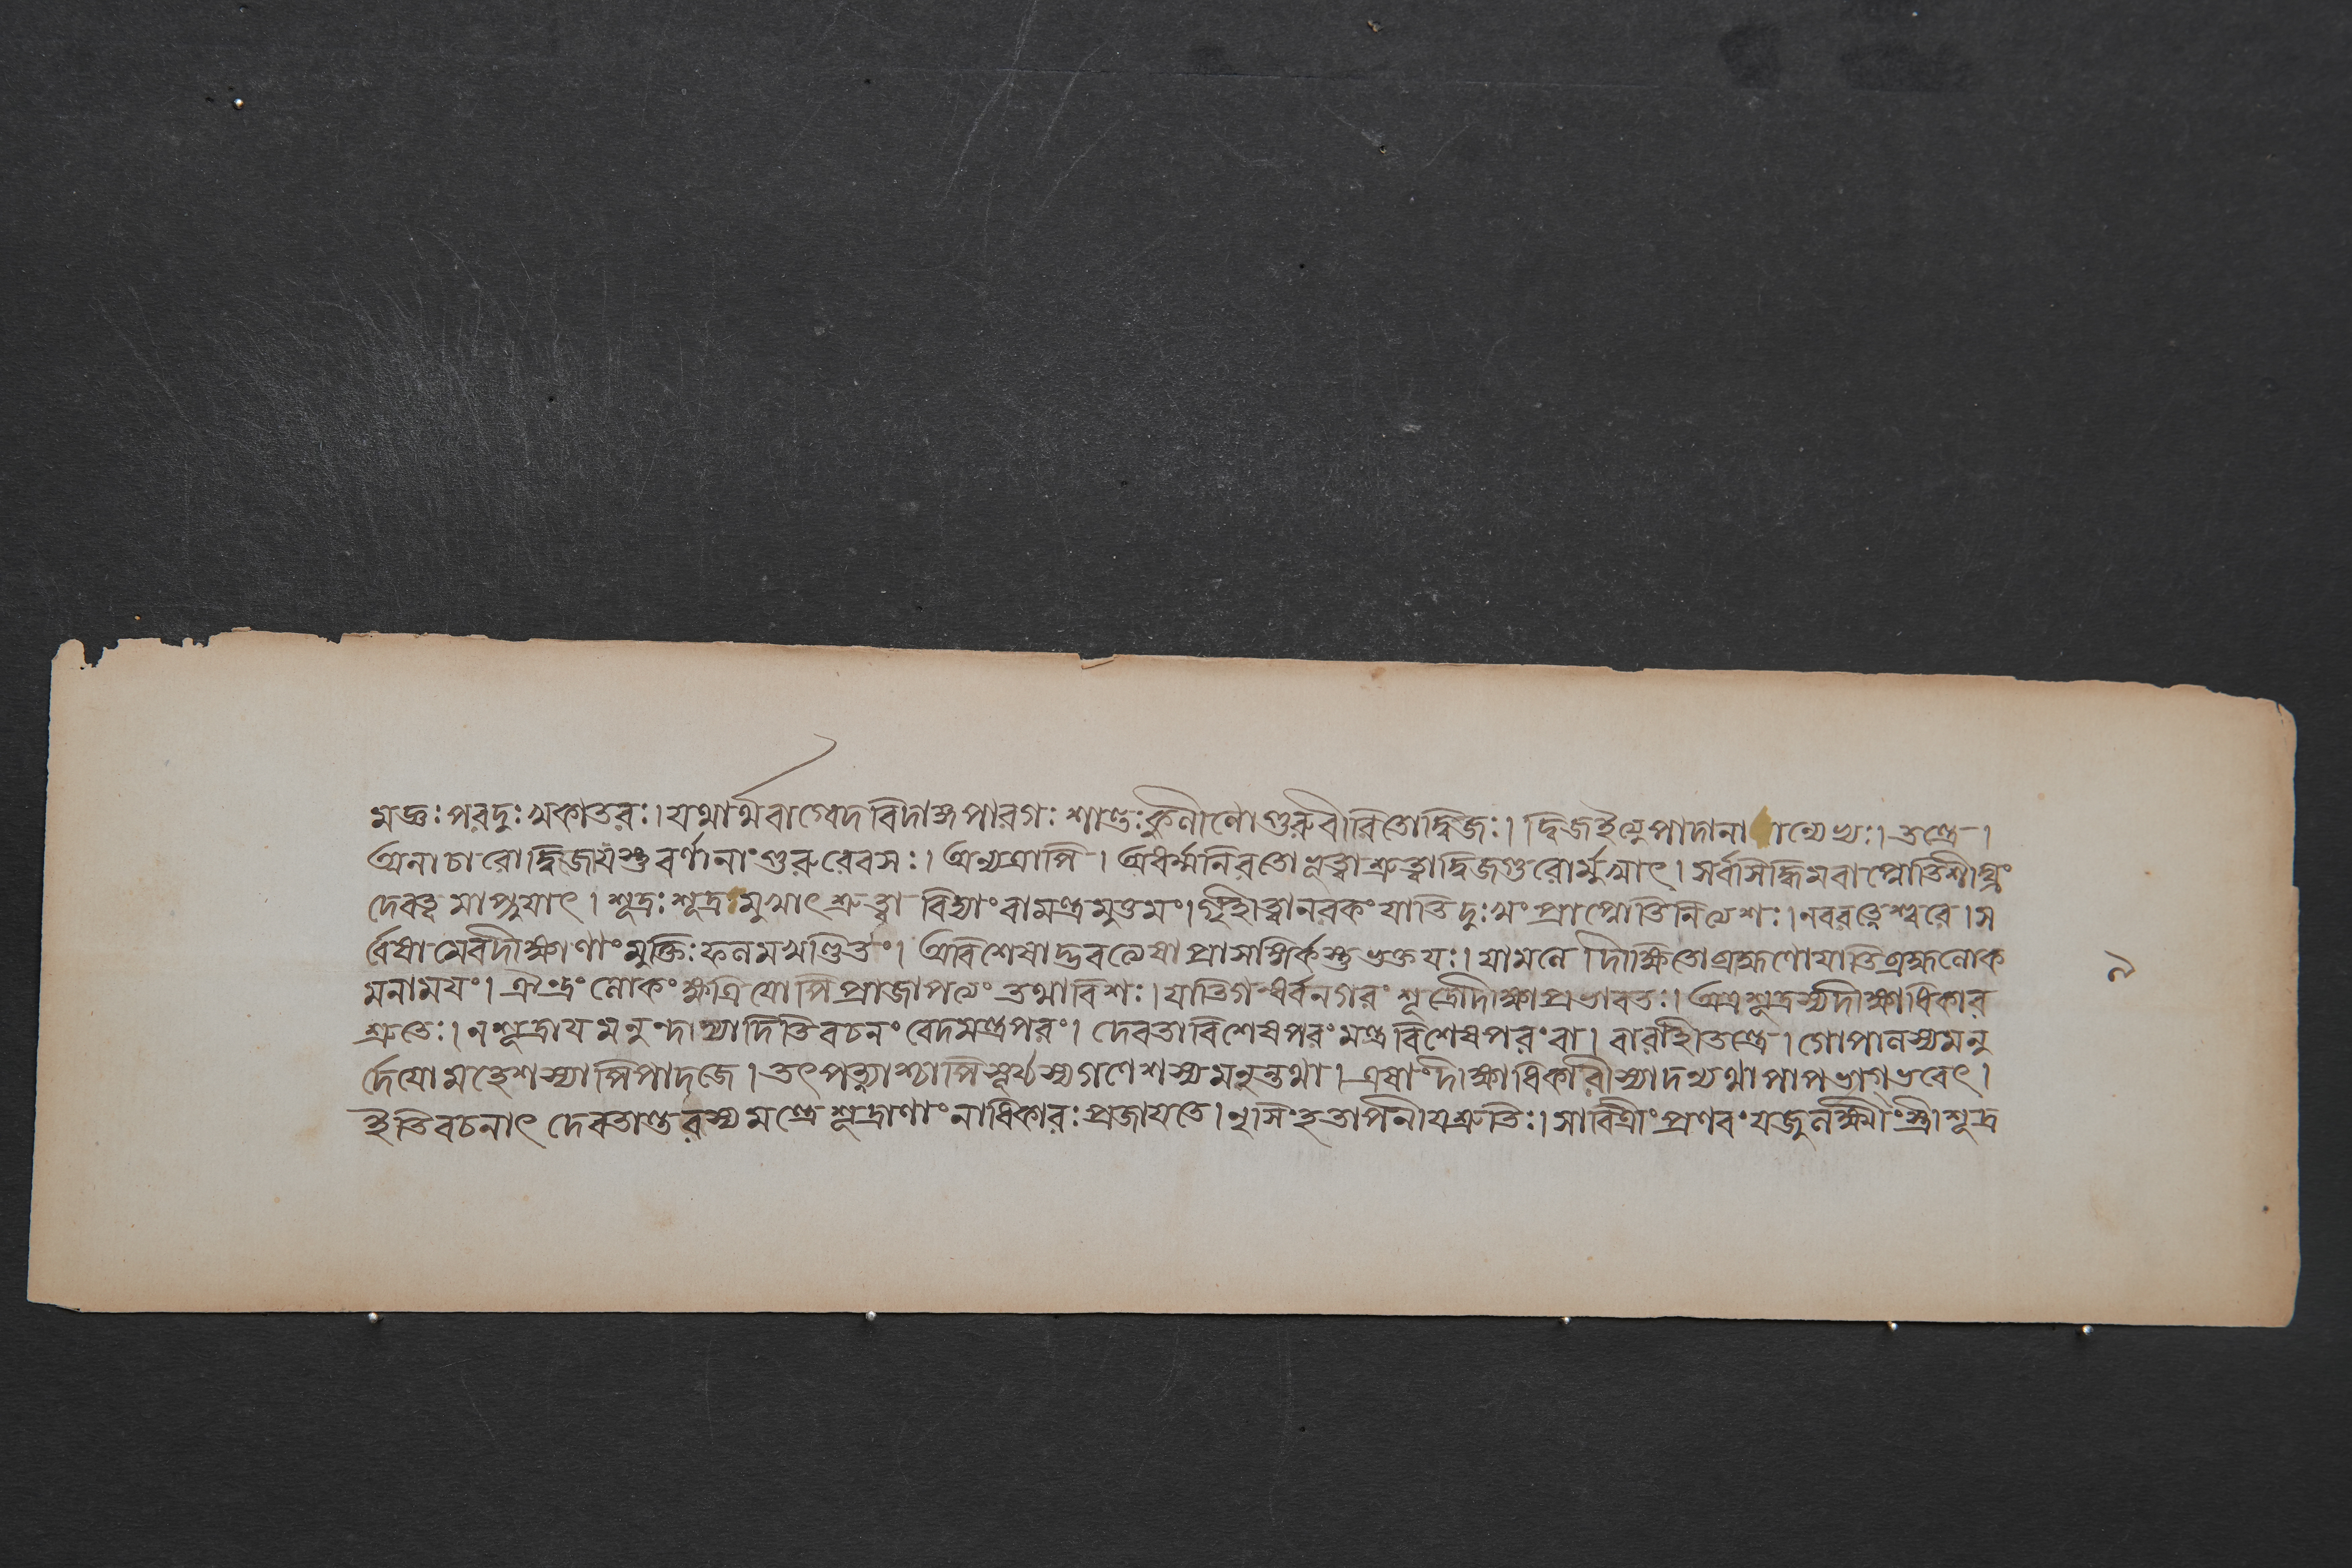 মজ্ঞঃ পরদুঃখকাতরঃ। যথার্থবাগ্বেদবিদাঙ্গপারগঃ শান্তঃ কুলীনো গুরুরীরিতো দ্বিজঃ। দ্বিজ ইত্যুপাদানা ান্যেভ্যঃ। তন্ত্রে।
অনাচারো দ্বিজো যস্তু বর্ণানাং গুরুরেব সঃ। অন্যত্রাপি। অধর্ম্মনিরতো শ্রুত্বা দ্বিজগুরোর্মুখাৎ। সর্বসিদ্ধিমবাপ্নোতি শীঘ্রং
দেবত্বমাপ্নুযাৎ। শূদ্রঃ শূদ্রমুখাৎ শ্রুত্বা বিদ্যাং বা মন্ত্রমুত্তমং। গৃহীত্বা নরকং যাতি দুঃখং প্রাপ্নোতি নিত্যশঃ। নবরত্নেশ্বরে। স
র্বেষামেব দীক্ষাণাং মুক্তিঃ ফলমখণ্ডিতং। অবিশেষাদ্ভবত্যেষা প্রাসঙ্গিকাস্তু ভুক্তযঃ। যামলে দীক্ষিতো ব্রাহ্মণো যাতি ব্রহ্মলোক
মনামযং। ঐন্দ্রং লোকং ক্ষত্রিযোপি প্রাজাপত্যং তথা বিশঃ। যাতি গন্ধর্বনগরং শূদ্রো দীক্ষাপ্রভাবতঃ। অত্র শূদ্রস্য দীক্ষাধিকার
শ্রুতেঃ। ন শূদ্রায মনুং দদ্যাদিতি বচনং বেদমন্ত্রপরং। দেবতাবিশেষপরং মন্ত্রবিশেষপরং বা। বারাহীতন্ত্রে। গোপালস্য মনু
র্দেযো মহেশস্যাপি পাদজে। তৎপত্ন্যাশ্চাপি সূর্য্যস্য গণেশস্য মনুস্তথা। এষাং দীক্ষাধিকারী স্যাদন্যথা পাপভাগ্ভবেৎ।
ইতি বচনাৎ দেবতান্তরস্য মন্ত্রে শূদ্রাণাং নাধিকারঃ প্রজাযতে। নৃসিংহতাপনীযশ্রুতিঃ। সাবিত্রীং প্রণবং যজুর্লক্ষ্মীং স্ত্রীশূদ্র